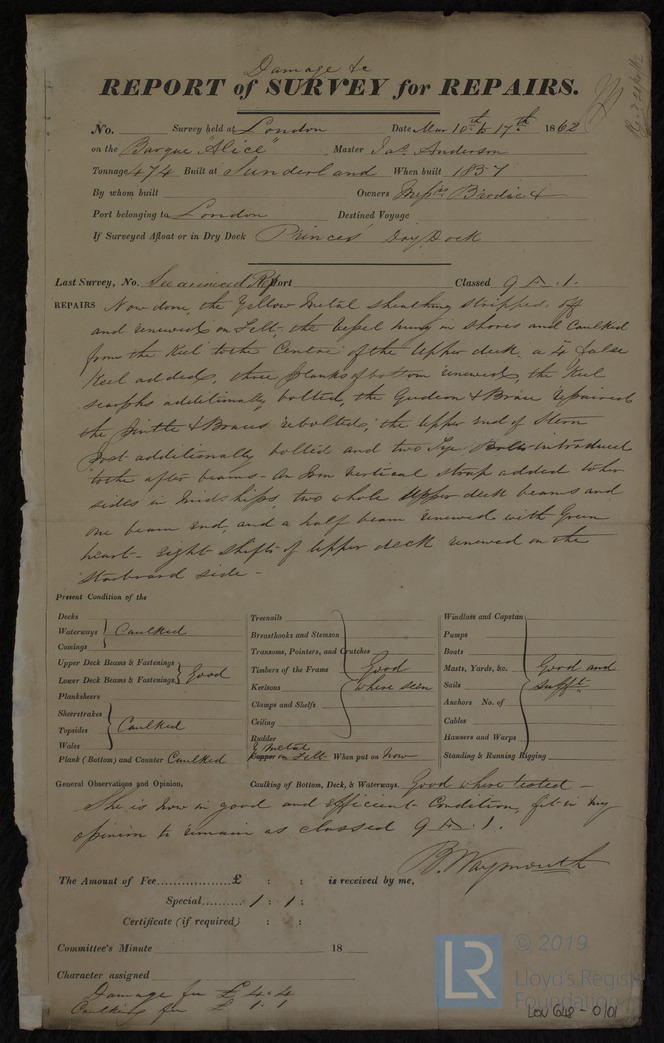 Damage &c
REPORT of SURVEY for REPAIRS.
No. Survey held at London Date Mar 10th to 17th 1862
on the Barque "Alice" Master Jas. Anderson
Tonnage 474 Built at Sunderland When built 1837
By whom built Owners Messrs Brodie &
Port belonging to London Destined Voyage
If Surveyed Afloat or in Dry Dock Princes' Dry Dock
Last Survey, No. Port Classed 9 A. 1.
REPAIRS Now done, the Yellow Metal sheathing stripped off
and renewed on Felt, the Vessel hung in shores and Caulked
from the Keel to the Centre of the Upper deck, a 4 false
Keel added, three planks of bottom renewed, the Keel
scarphs additionally bolted, the Gudeon & Brace repaired
the Pintle & Braces rebolted, the upper end of Stern
Post additionally bolted and two introduced
to the after beams - An Iron Vertical strap added to her
sides in Midships, two whole Upper deck beams and
one beam end, and a half beam renewed with Green
heart - Eight shifts of Upper deck renewed on the
starboard side -
Present Condition of the
Decks
Waterways Caulked
Comings
Upper Deck Beams & Fastenings Good
Lower Deck Beams & Fastenings
Planksheers
Sheerstrakes
Topsides Caulked
Wales
Plank (Bottom) and Counter Caulked
Treenails
Breasthooks and Stemson
Transoms, Pointers, and Crutches
Timbers of the Frame Good
Keelsons where seen
Clamps and Shelfs
Ceiling
Rudder
Y Metal
Copper on Felt When put on now
Windlass and Capstan
Pumps
Boats
Masts, Yards, &c. Good and
Sails sufft
Anchors No. of
Cables
Hawsers and Warps
Standing & Running Rigging
General Observations and Opinion, Caulking of Bottom, Deck, & Waterways. Good where tested -
She is now in good and efficient Condition, fit in my
opinion to remain as classed 9 A. 1.
B. Waymouth
The Amount of Fee £ : : is received by me,
Special 1 : 1 :
Certificate (if required) : :
Committee's Minute 18
Character assigned
Damage fee £ 4.4
Caulking fee £ 1.1
LR © 2019
Lloyd's Register
Foundation
LON 648 - 0101